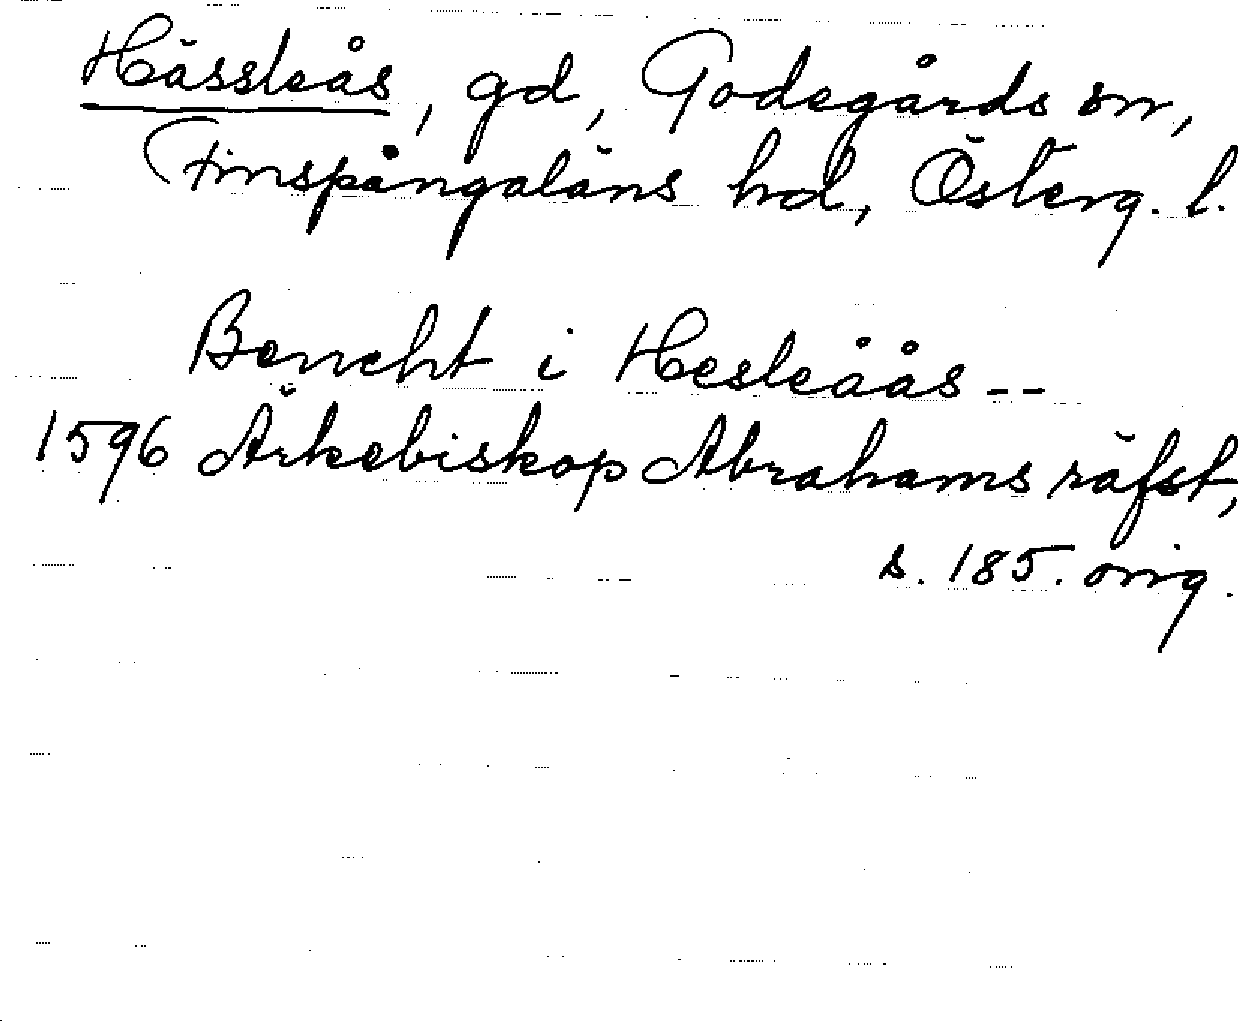 Hässleås, gd, Godegårds sn,
Finspångaläns hd, Österg. l.
Bencht i Hesleåås --
1596 Ärkebiskop Abrahams räfst,
s. 185. orig.